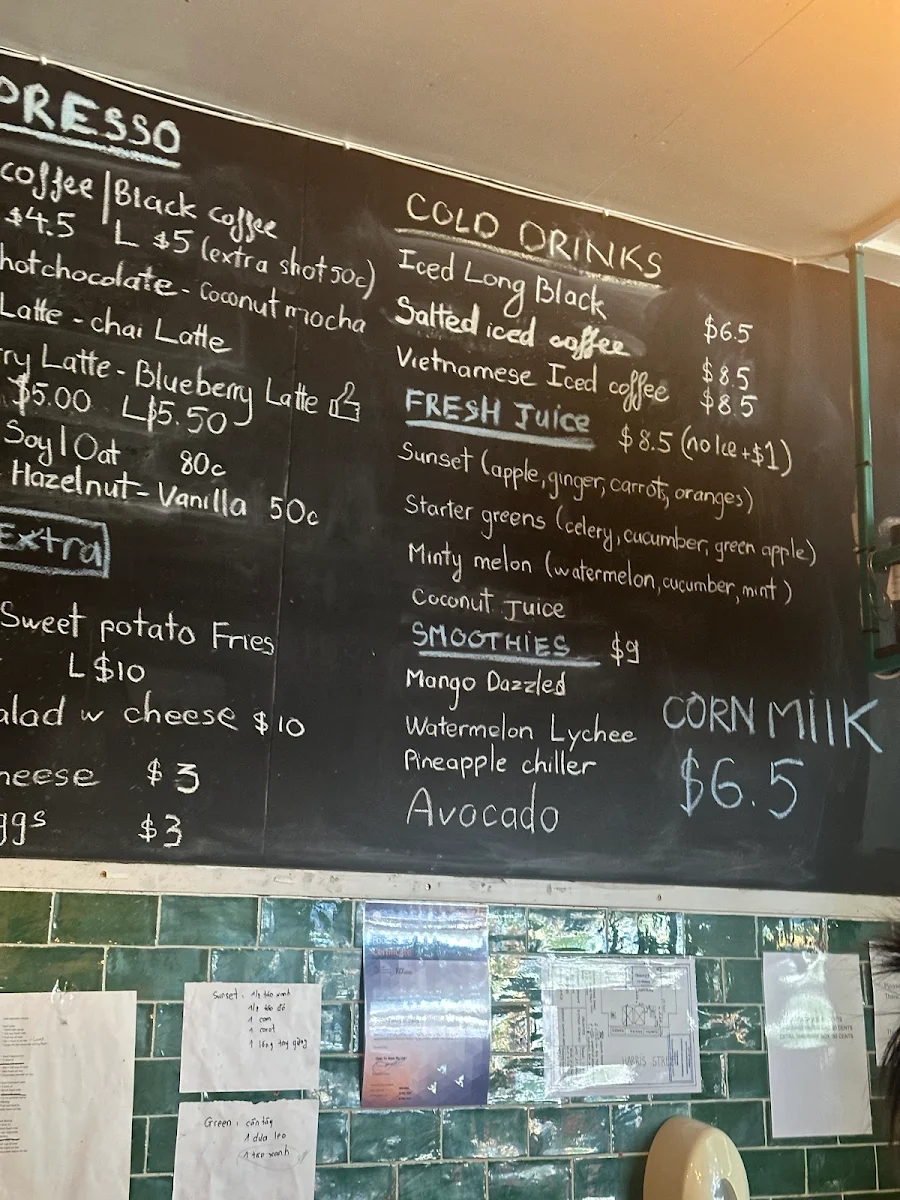 PRESSO
coffee | Black coffee
$4.5 L $5 (extra shot 50c)
hotchocolate - Coconut mocha
Latte - chai Latte
ry Latte - Blueberry Latte
$5.00 L$5.50
Soy | Oat 80c
Hazelnut - Vanilla 50c
Extra
Sweet potato Fries
L $10
alad w cheese $10
heese $3
ggs $3
COLD DRINKS
Iced Long Black $6.5
Salted iced coffee $8.5
Vietnamese Iced coffee $8.5
FRESH Juice $8.5 (no Ice +$1)
Sunset (apple, ginger, carrot, oranges)
Starter greens (celery, cucumber, green apple)
Minty melon (watermelon, cucumber, mint)
Coconut Juice
SMOOTHIES $9
Mango Dazzled
Watermelon Lychee
Pineapple chiller
Avocado
CORN MilK
$6.5
Sunset:
1 cam
1 carot
1 lóng tay gừng
Green: cần tây
1 dưa leo
1 táo xanh
Certificate
HARRIS STRE